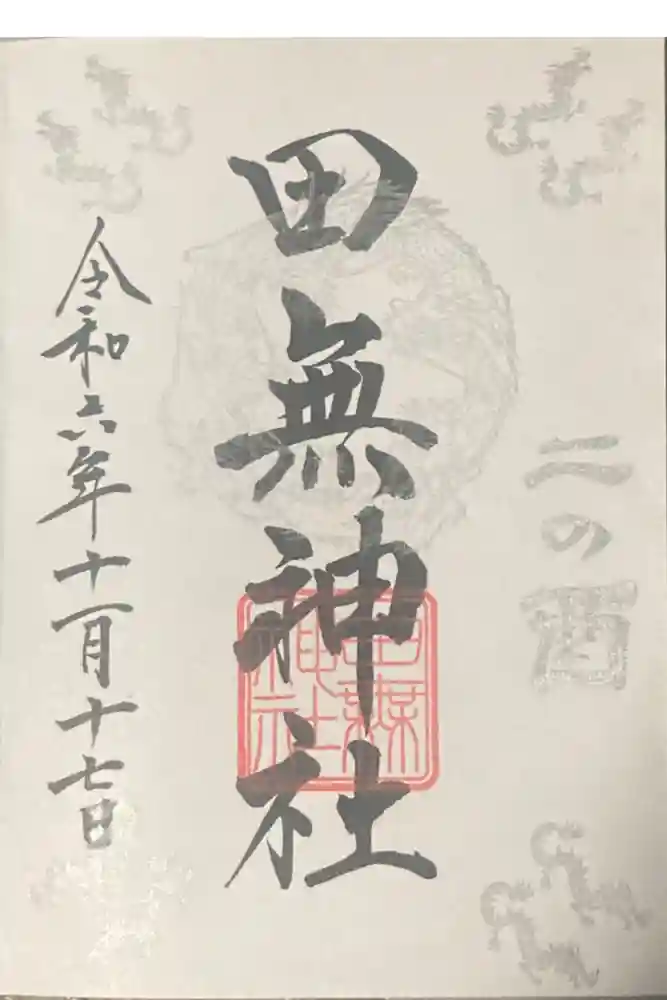 二の酉
田無神社
令和六年十一月十七日
田無神社